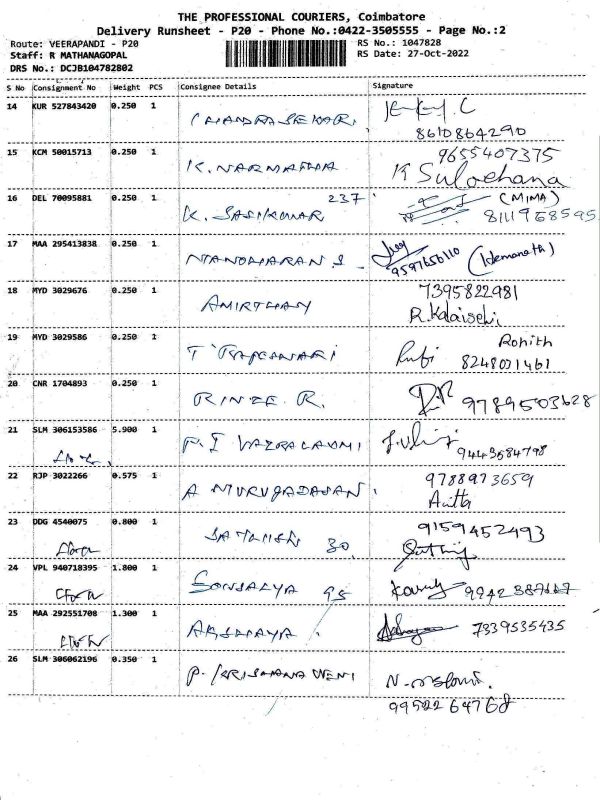 THE PROFESSIONAL COURIERS, Coimbatore
Delivery Runsheet - P20 - Phone No.:0422-3505555 - Page No.:2
Route: VEERAPANDI - P20 RS No.: 1047828
Staff: R MATHANAGOPAL RS Date: 27-Oct-2022
DRS No.: DCJB104782802
S No Consignment No Weight PCS Consignee Details Signature
14 KUR 527843420 0.250 1
8610864290
15 KCM 50015713 0.250 1 K. NARMATHA 9655407375
K Sulochana
16 DEL 70095881 0.250 1 K. SASIKUMAR 237 (MIMA)
8111968595
17 MAA 295413838 0.250 1 MANOHARAN S 9597656110 (Hemanath)
18 MYD 3029676 0.250 1 7395822981
R. Kalaiselvi
19 MYD 3029586 0.250 1 T RAJESWARI Rohith
8248031461
20 CNR 1704893 0.250 1 RINZE R. 9789503628
21 SLM 306153586 5.900 1 9443584798
22 RJP 3022266 0.575 1 A MURUGADASAN 9788973659
Anitta
23 DDG 4540075 0.800 1 SATHISH 30 9159452493
24 VPL 940718395 1.800 1 95
25 MAA 292551708 1.300 1 AKSHAYA 7339535435
26 SLM 306062196 0.350 1 P. KRISHANA VENI
9952264768